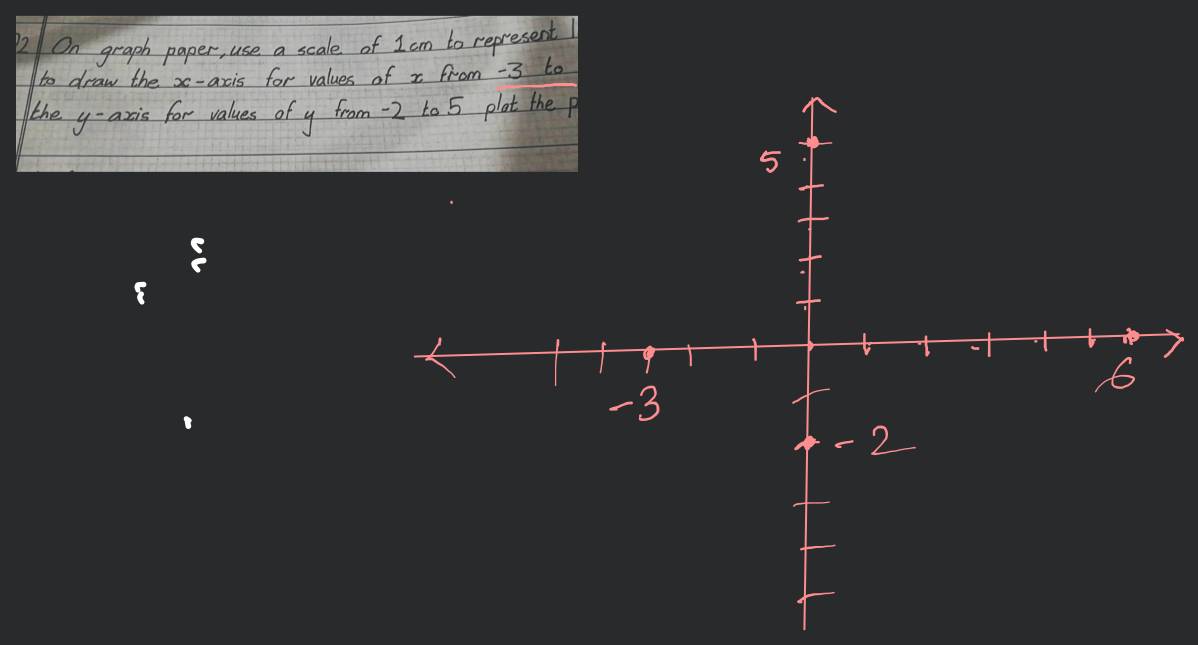 2 On graph paper, use a scale of 1cm to represent 1
to draw the x-axis for values of x from -3 to
the y-axis for values of y from -2 to 5 plot the p
5
-3
6
-2